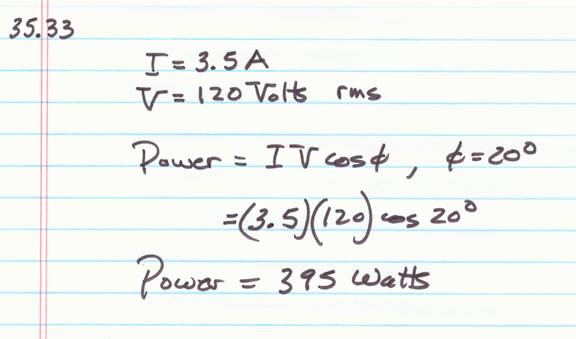 35.33
I = 3.5 A
V = 120 Volts rms
Power = I V cos ϕ , ϕ = 20°
= (3.5)(120) cos 20°
Power = 395 Watts